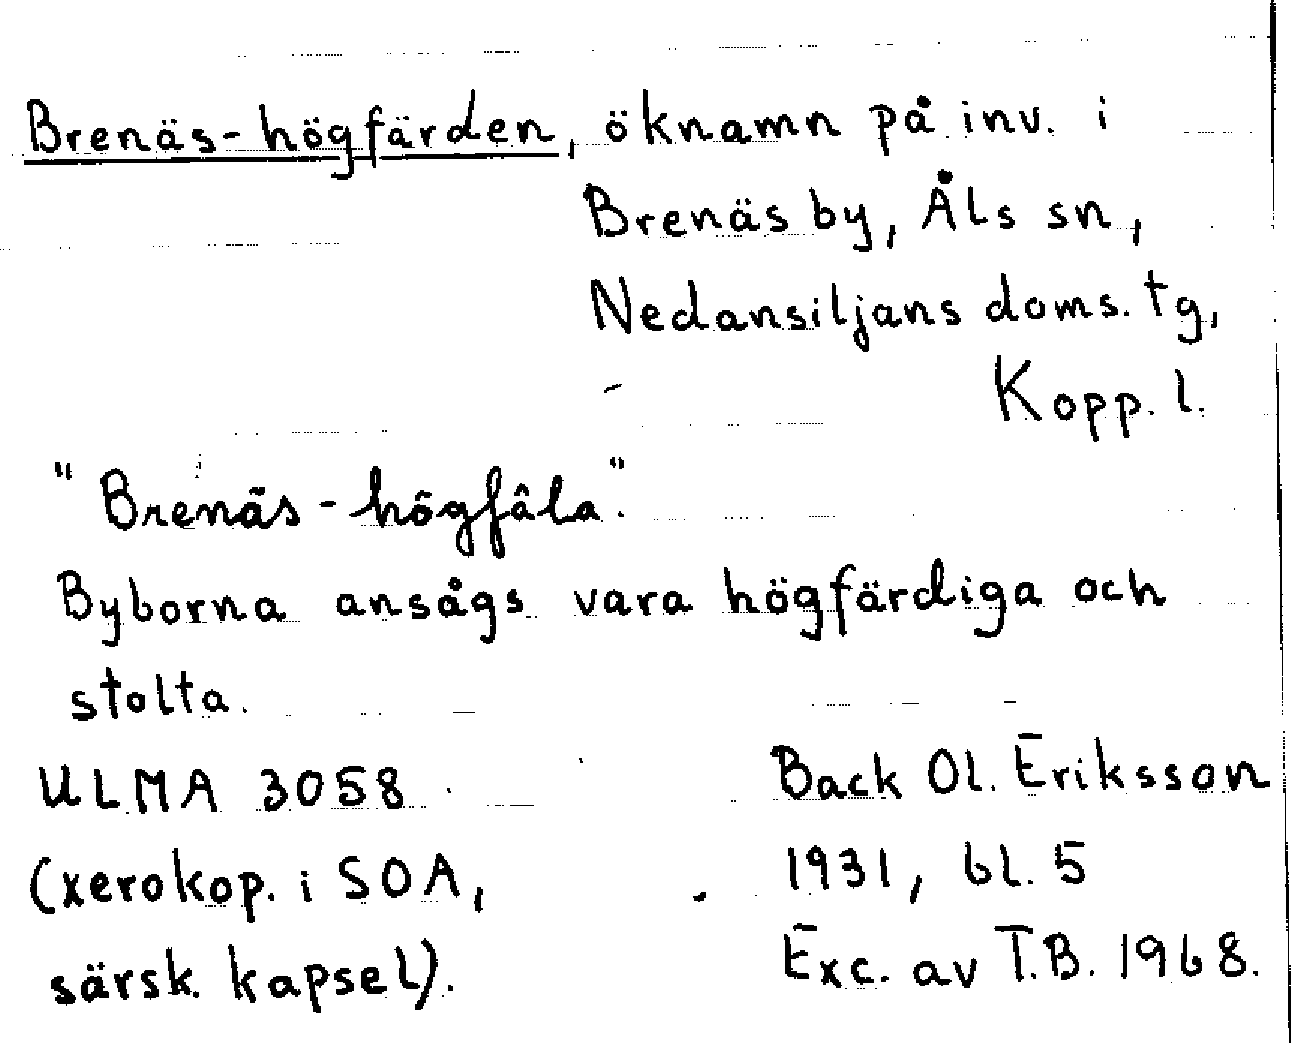 Brenäs-högfärden, öknamn på inv. i
Brenäs by, Åls sn,
Nedansiljans doms. tg,
Kopp. l.
"Brenäs-högfâla".
Byborna ansågs vara högfärdiga och
stolta.
ULMA 3058
(xerokop. i SOA,
särsk. kapsel).
Back Ol. Eriksson
1931, bl. 5
Exc. av T.B. 1968.